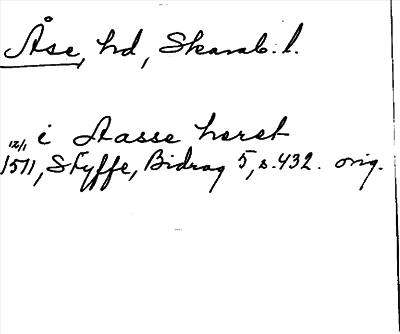 Åse, hd, Skarab. l.
i Aasse heret
12/1 1511, Styffe, Bidrag 5, s. 432. orig.